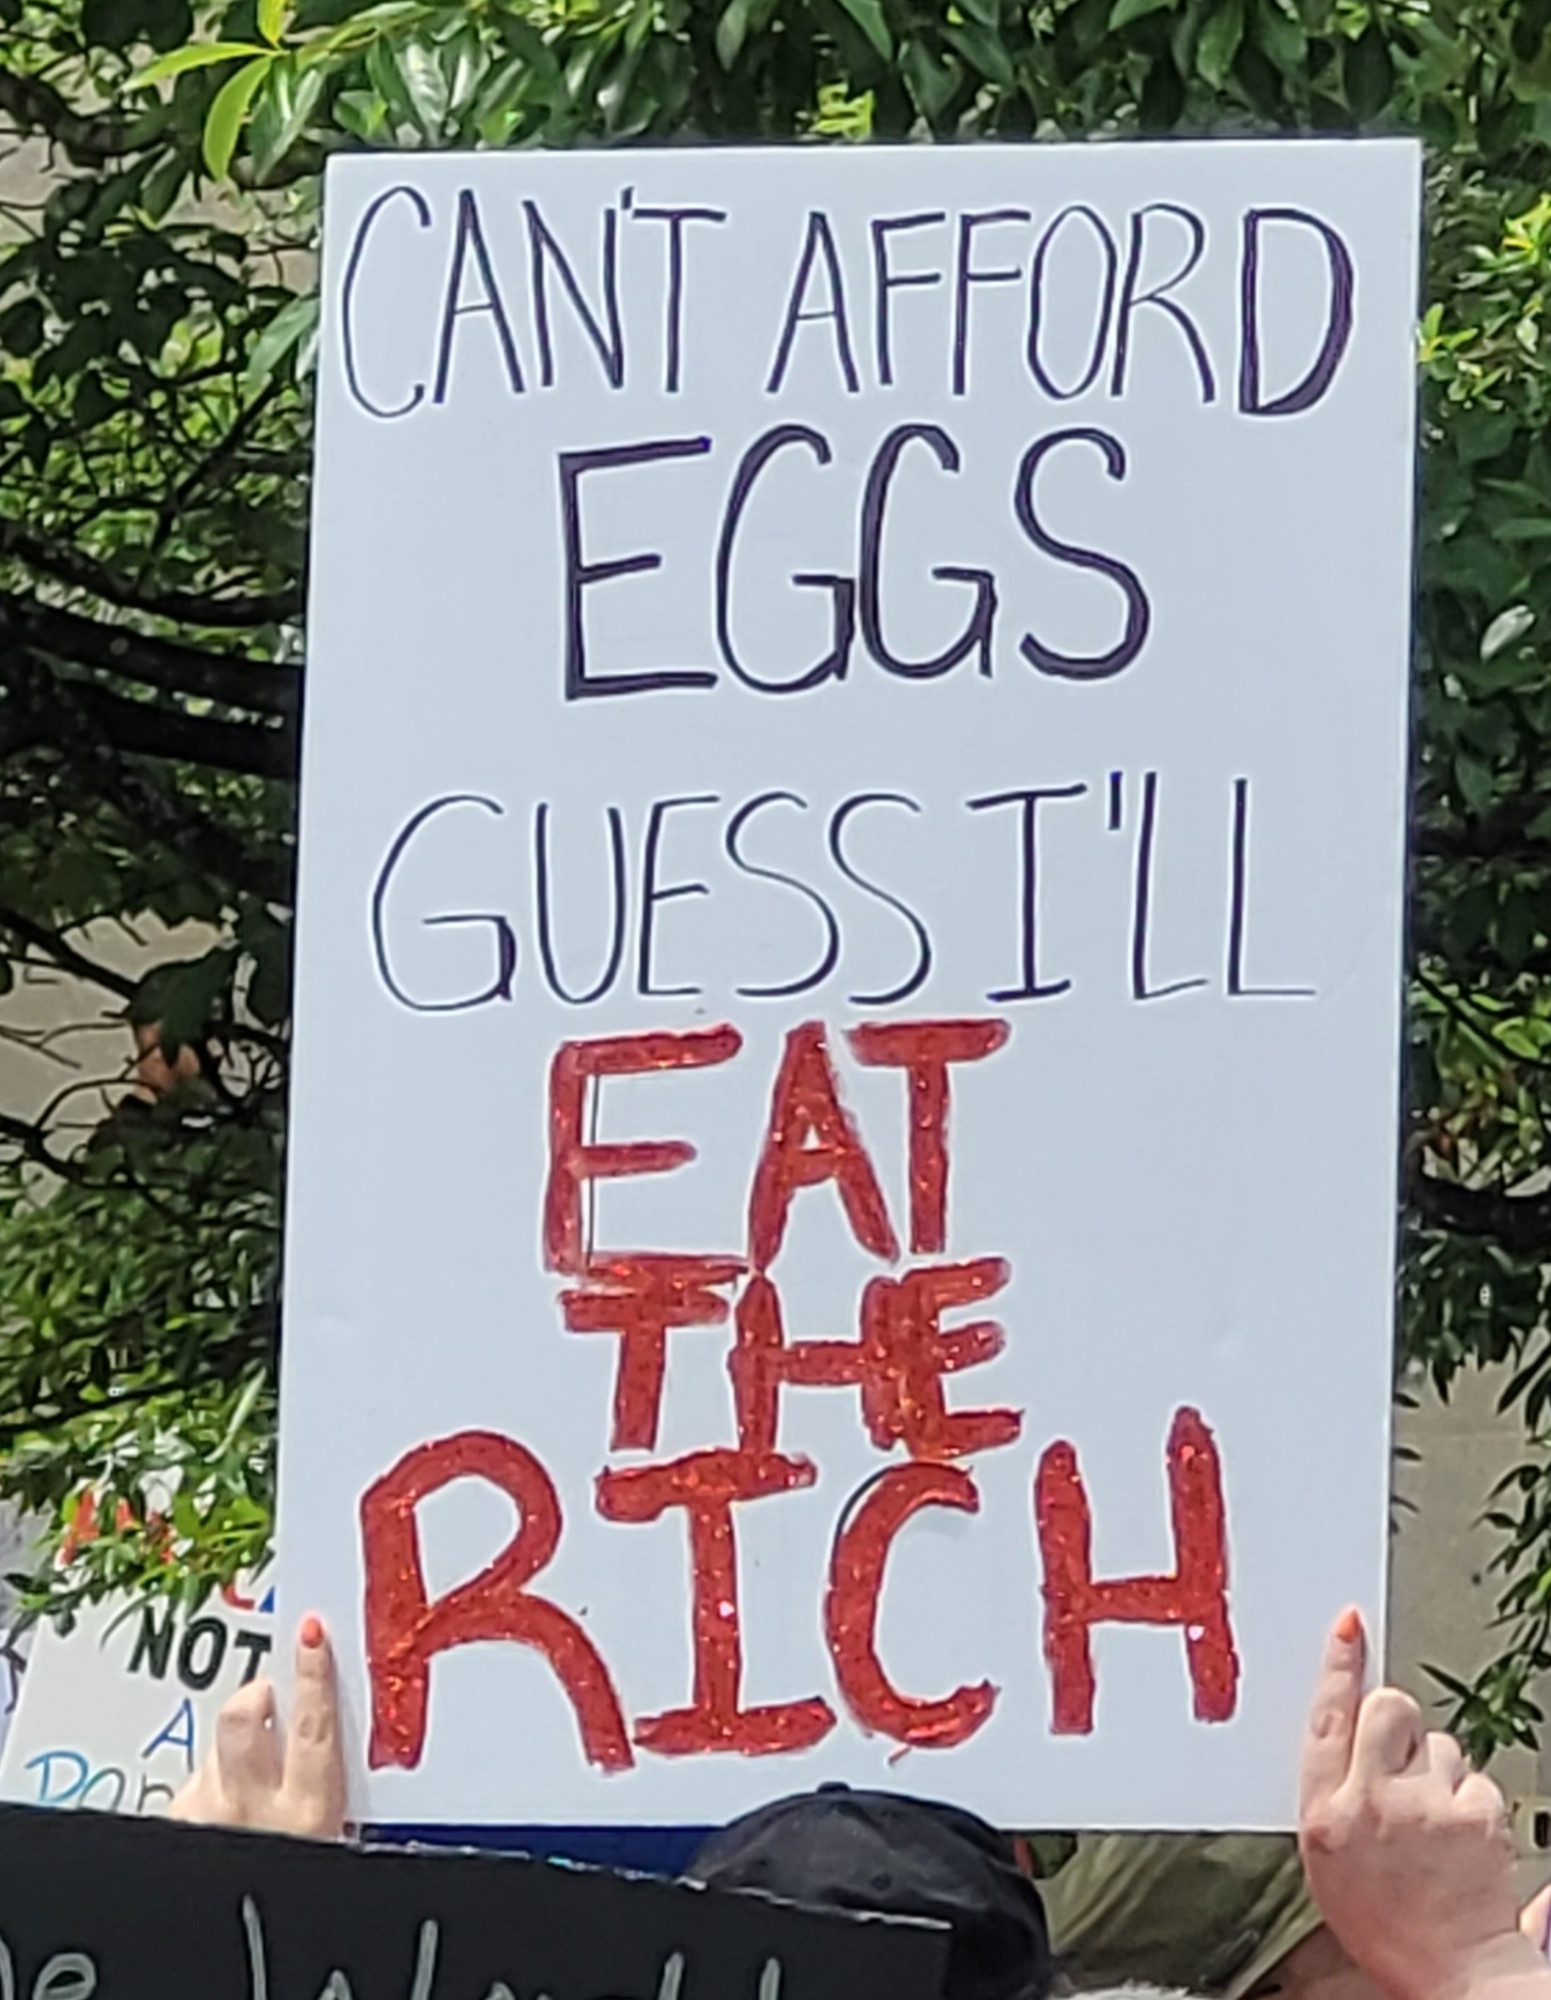 CAN'T AFFORD
EGGS
GUESS I'LL
EAT
THE
RICH
NOT
A